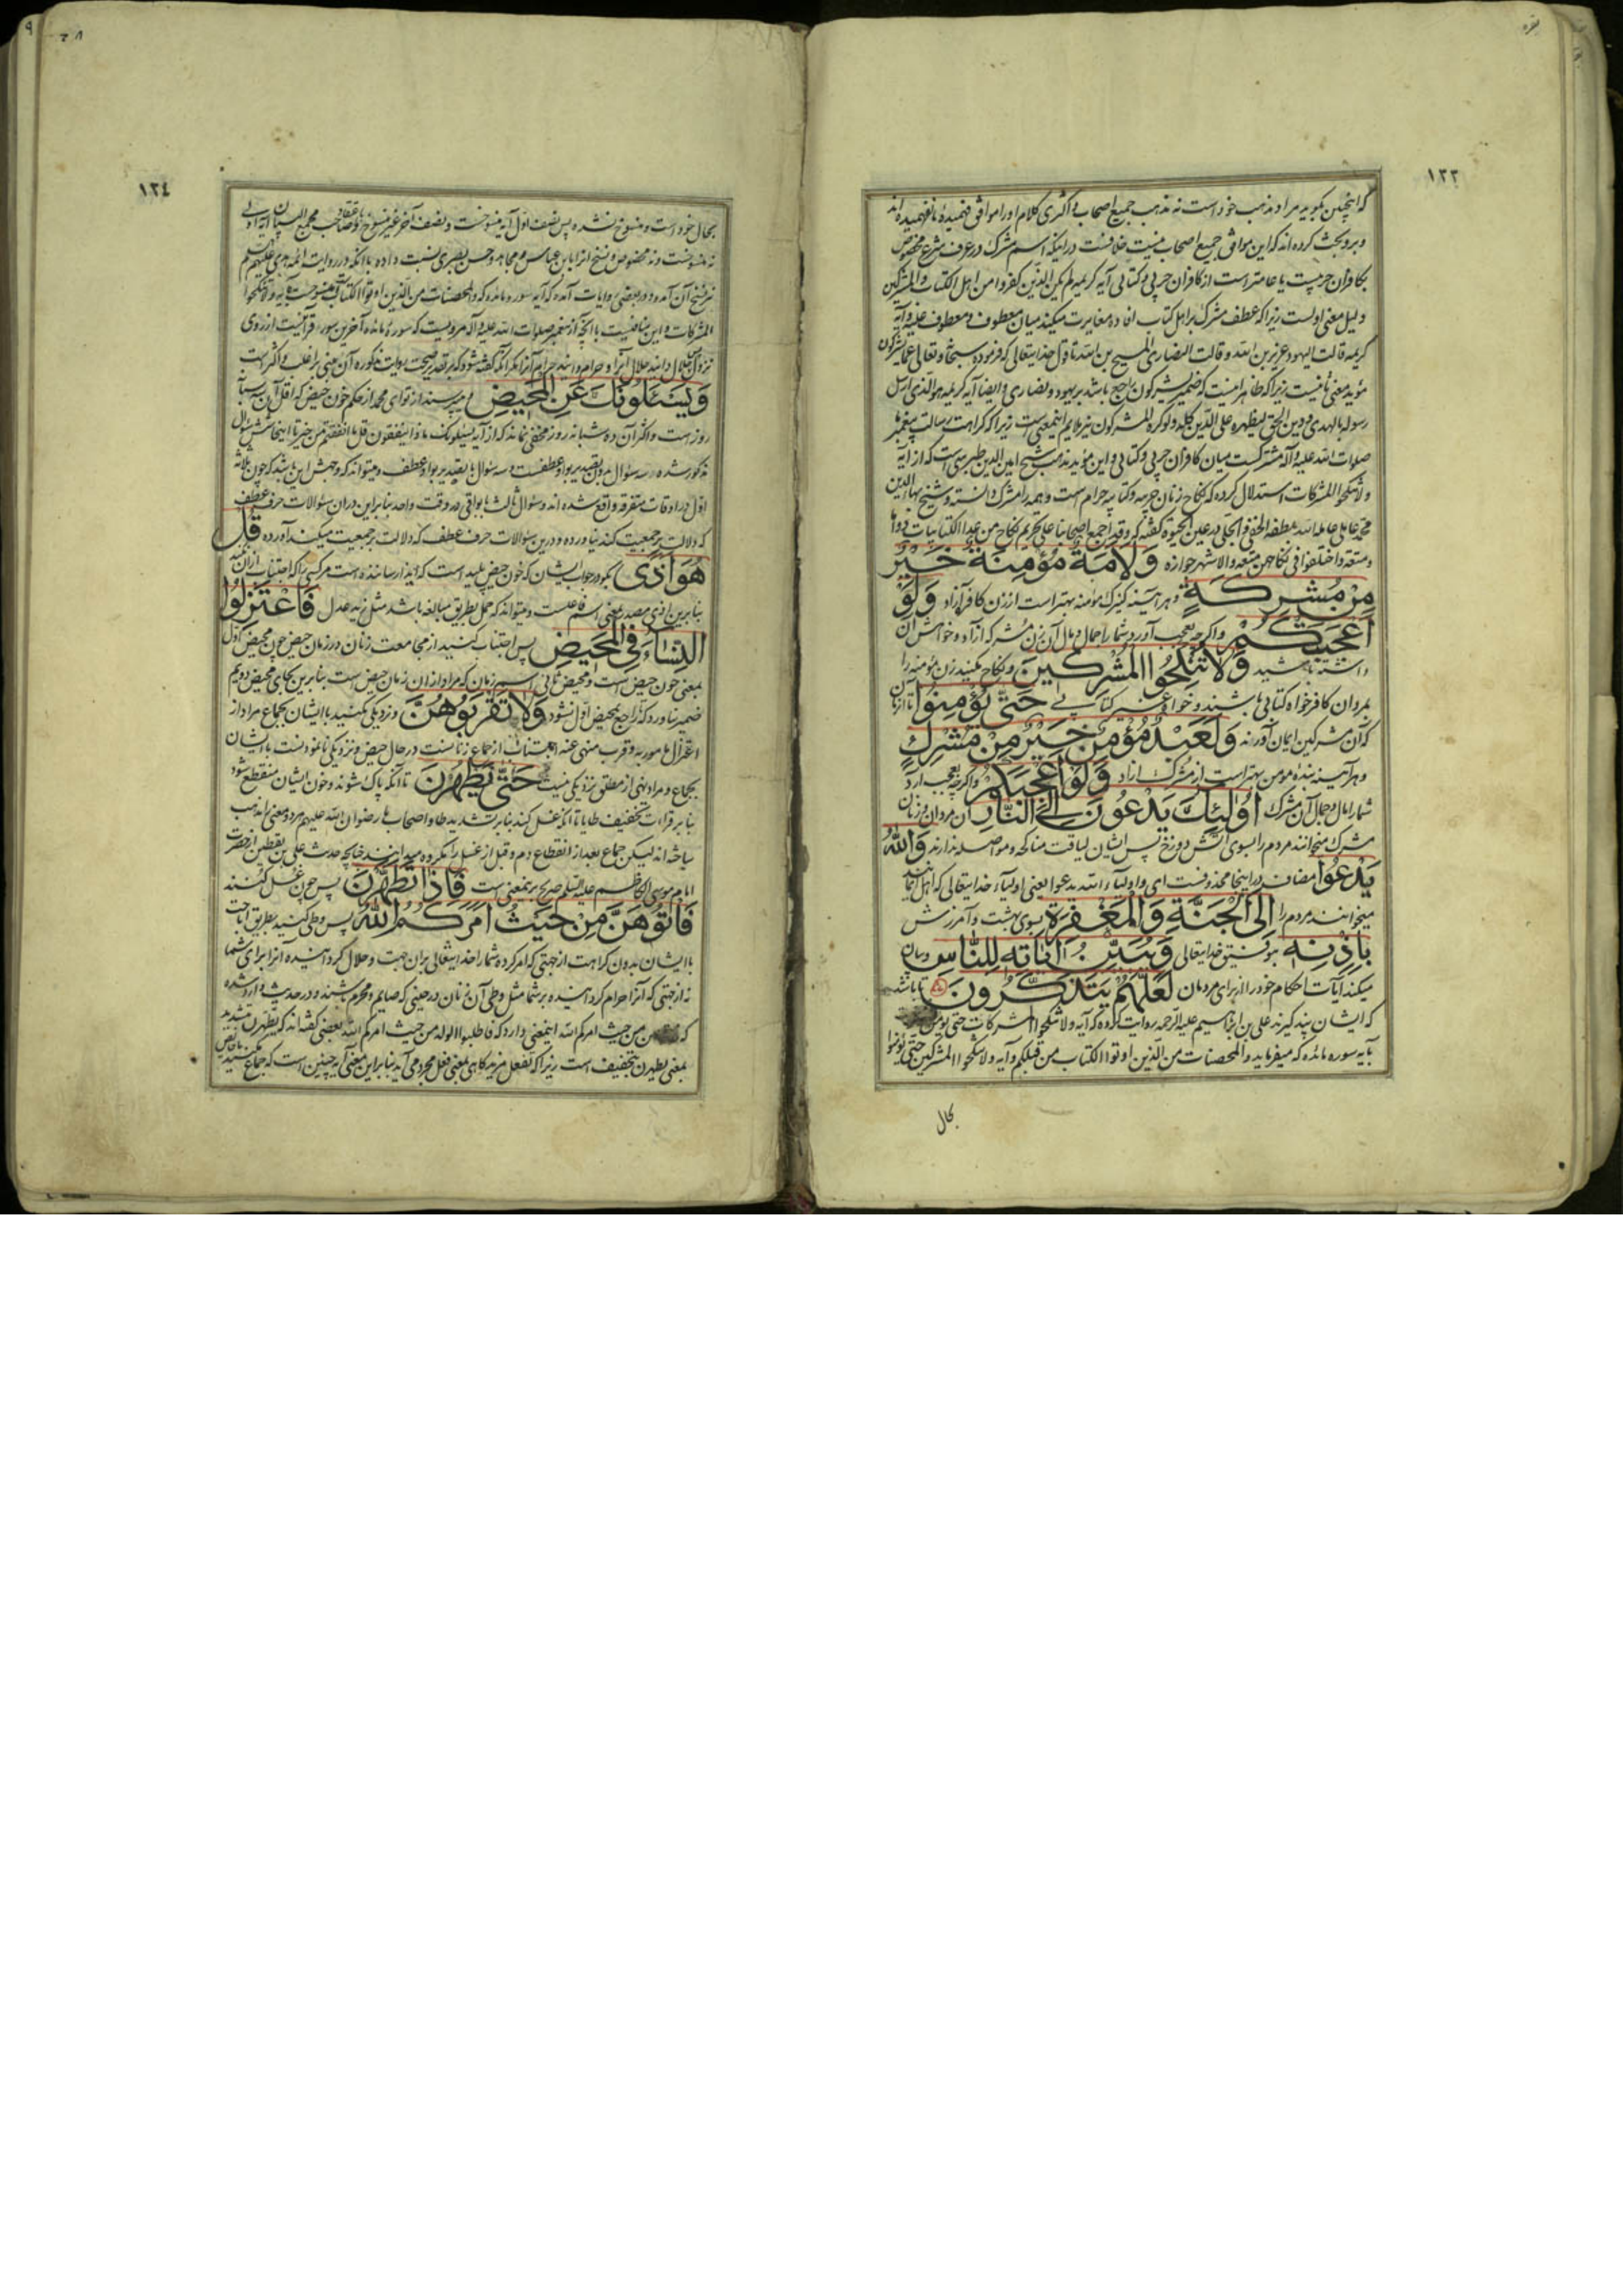 بقره
١٢٣
که اینچنین بگوید مراد مذهب خود است نه مذهب جمیع اصحاب و اکثری کلام او را موافق فهمیده نافهمیده اند
و برو بحث کرده اند که این موافق جمیع اصحاب نیست خلافست در اینکه اسم مشرک در عرف شرع مخصوص
بکافران حربیست یا عامتر است از کافران حربی و کتابی آیه کریمه لم یکن الذین کفروا من اهل الکتاب والمشرکین
دلیل معنی اولست زیرا که عطف مشرک بر اهل کتاب افاده مغایرت میکند میان معطوف و معطوف علیه و آیه
کریمه قالت الیهود عزیر بن الله و قالت النصاری المسیح بن الله تا قول خدایتعالی که فرموده سبحانه وتعالی عما یشرکون
مؤید معنی ثانیست زیرا که ظاهر اینست که ضمیر یشرکون راجع باشد بر یهود و نصاری و ایضا آیه کریمه هو الذی ارسل
رسوله بالهدی و دین الحق لیظهره علی الدین کله ولو کره المشرکون نیز ملایم اینمعنی است زیرا که کراهت رسالت پیغمبر ما
صلوات الله علیه و آله مشترکست میان کافران حربی و کتابی و این مؤید مذهب شیخ امین الدین طبرسی است که از آیه
ولا تنکحوا المشرکات استدلال کرده که نکاح زنان حربیه و کتابیه حرام است و همه را مشرک دانسته و شیخ بهاء الدین
محمد عاملی عامله الله بلطفه الخفی والجلی در عین الحیوة گفته که وقد اجمع اصحابنا علی تحریم نکاح من عدا الکتابیات دواما
ومتعة واختلفوا فی نکاحهن متعة والاشهر جوازه وَلَاَمَةٌ مُؤْمِنَةٌ خَيْرٌ
مِنْ مُشْرِكَةٍ و هر آینه کنیزک مؤمنه بهتر است از زن کافر آزاد وَلَوْ
اَعْجَبَتْكُمْ و اگر چه بعجب آورد شما را جمال و مال آن زن مشرکه آزاد و خواهش آن
داشته باشید وَلَا تُنْكِحُوا الْمُشْرِكِينَ و نکاح مکنید زن مؤمنه را
بمردان کافر خواه کتابی باشند و خواه غیر کتابی حَتّٰى يُؤْمِنُوا تا آن زمان
که آن مشرکین ایمان آورند وَلَعَبْدٌ مُؤْمِنٌ خَيْرٌ مِنْ مُشْرِكٍ
و هر آینه بنده مومن بهتر است از مشرک آزاد وَلَوْ اَعْجَبَكُمْ و اگر چه بعجب آرد
شما را مال و جمال آن مشرک اُولٰئِكَ يَدْعُونَ اِلَى النَّارِ آن مردان و زنان
مشرک میخوانند مردم را بسوی آتش دوزخ پس ایشان لیاقت مناکحه و مواصله ندارند وَاللّٰهُ
يَدْعُوا مضاف در اینجا محذوفست ای و اولیاء الله یدعوا یعنی اولیاء خدایتعالی که اهل ایمانند
میخوانند مردم را اِلَى الْجَنَّةِ وَالْمَغْفِرَةِ بسوی بهشت و آمرزش
بِاِذْنِهِ بتوفیق خدایتعالی وَيُبَيِّنُ اٰيَاتِهِ لِلنَّاسِ و بیان
میکند آیات احکام خود را از برای مردمان لَعَلَّهُمْ يَتَذَكَّرُونَ تا باشد
که ایشان پند گیرند علی بن ابراهیم علیه الرحمه روایت کرده که آیه ولا تنکحوا المشرکات حتی یؤمن
بآیه سوره مائده که میفرماید والمحصنات من الذین اوتوا الکتاب من قبلکم و آیه ولا تنکحوا المشرکین حتی یؤمنوا
بحال
١٢٤
بحال خود است و منسوخ نشده پس نصف اول آیه منسوخست و نصف آخر غیر منسوخ و باعتقاد صاحب مجمع البیان این آیه
نه منسوخست و نه مخصوص و نسخ آنرا بابن عباس و مجاهد و حسن بصری نسبت داده با آنکه در روایت ائمه هدی علیهم السلم
نیز نسخ آن آمده و در بعضی روایات آمده که آیه سوره مائده که والمحصنات من الذین اوتوا الکتاب منسوخست بآیه ولا تنکحوا
المشرکات و این منافیست با آنچه از پیغمبر صلوات الله علیه و آله مرویست که سوره مائده آخرین سوره قرآنیست از روی
نزول حلال دانید حلال آنرا و حرام دانید حرام آنرا مگر آنکه گفته شود که بر تقدیر صحت روایت مذکوره آن معنی بر اغلب و اکثر است
وَيَسْئَلُونَكَ عَنِ الْمَحِيضِ و میپرسند از تو ای محمد از حکم خون حیض که اقل آن سه شبانه
روز است و اکثر آن ده شبانه روز مخفی نماند که از آیه یسئلونک ماذا ینفقون قل ما انفقتم من خیر تا اینجا شش سؤال
مذکور شده سه سؤال بدون تقدیر واو عطفست و سه سؤال با تقدیر واو عطف و میتواند که وجهش این باشد که چون ثلاثه
اول در اوقات متفرقه واقع شده اند و سؤال ثالث با بواقی در وقت واحد بنابراین در آن سؤالات حرف عطف
که دلالت بر جمعیت کند نیاورده و درین سؤالات حرف عطف که دلالت بر جمعیت میکند آورده قُلْ
هُوَ اَذًى بگو در جواب ایشان که خون حیض پلید است که ایذا رساننده است مر کسی را که اجتناب از آن نکند
بنا برین اذی مصدر بمعنی اسم فاعلست و میتواند که حمل بطریق مبالغه باشد مثل زید عدل فَاعْتَزِلُوا
النِّسَاءَ فِي الْمَحِيضِ پس اجتناب کنید از مجامعت زنان در زمان حیض چون محیض اول
بمعنی خون حیض است و محیض ثانی اسم زمان که مراد از آن زمان حیض است بنابرین بجای محیض دویم
ضمیر نیاورد که راجع بمحیض اول نشود وَلَا تَقْرَبُوهُنَّ و نزدیکی مکنید با ایشان بجماع مراد از
اعتزال مامور به و قرب منهی عنه اجتناب از جماع زنانست در حال حیض و نزدیکی ننمودنست با ایشان
بجماع و مراد نهی از مطلق نزدیکی نیست حَتّٰى يَطْهُرْنَ تا آنکه پاک شوند و خون ایشان منقطع شود
بنا بر قراءت تخفیف طا یا تا آنکه غسل کنند بنا بر تشدید طا و اصحاب ما رضوان الله علیهم هر دو معنی را مذهب
ساخته اند لیکن جماع بعد از انقطاع دم و قبل از غسل را مکروه میدانند چنانچه حدیث علی بن یقطین از حضرت
امام موسی الکاظم علیه السلم صریح بر اینمعنی است فَاِذَا تَطَهَّرْنَ پس چون غسل کنند
فَاْتُوهُنَّ مِنْ حَيْثُ اَمَرَكُمُ اللّٰهُ پس وطی کنید بطریق اباحت
با ایشان بدون کراهت از جهتی که امر کرده شما را خدایتعالی بر آن جهت و حلال گردانیده آنرا برای شما
نه از جهتی که آنرا حرام گردانیده بر شما مثل وطی آن زنان در حینی که صایم و محرم باشند و در حدیث وارد شده
که من حیث امرکم الله اینمعنی دارد که فاطلبوا الولد من حیث امرکم الله بعضی گفته اند که یطهرن بتشدید
بمعنی یطهرن بتخفیف است زیرا که تفعل مزید گاهی بمعنی فعل مجرد می آید بنابراین معنی آیه چنین است که جماع مکنید